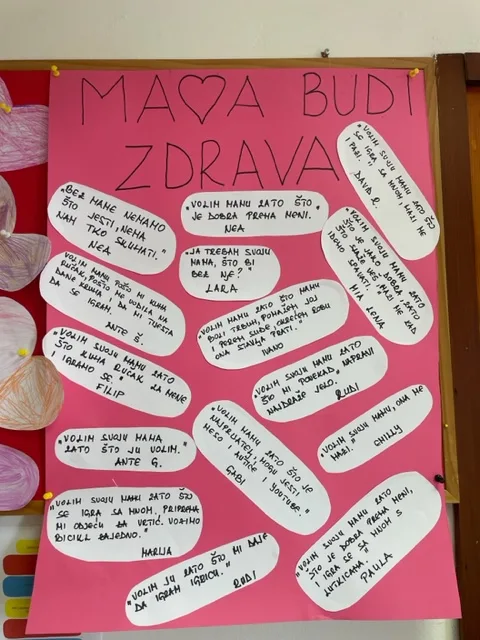 MAMA BUDI
ZDRAVA
"VOLIM SVOJU MAMU ZATO ŠTO
SE IGRA SA MNOM, MAZI ME
I PAZI."
DAVID R.
"BEZ MAME NEMAMO
ŠTO JESTI, NEMA
NAM TKO SKUHATI."
NEA
"VOLIM MAMU ZATO ŠTO
JE DOBRA PREMA MENI.
NEA
"JA TREBAM SVOJU
MAMA, ŠTO BI
BEZ NJE?"
LARA
"VOLIM SVOJU MAMU ZATO
ŠTO JE JAKO DOBRA, ZATO
ŠTO MAZI ME KAD
IDEMO SPAVATI."
MIA LENA
VOLIM MAMU POŠTO MI KUHA
RUČAK, POŠTO ME VODICA NA
DANE KRUHA I DA MI TIJESTA
DA SE IGRAM.
ANTE Š.
"VOLIM MAMU ZATO ŠTO MAMU
BOLI TRBUH, POMAŽEM JOJ
I PEREM SUĐE, OKREĆEM ROBU
ONA STAVLJA PRATI."
IVANO
"VOLIM SVOJU MAMU ZATO
ŠTO KUHA RUČAK ZA MENE
I IGRAMO SE."
FILIP
"VOLIM SVOJU MAMU ZATO
ŠTO MI PONEKAD NAPRAVI
NAJDRAŽE JELO.
RUDI
"VOLIM SVOJU MAMU, ONA ME
MAZI."
CHILLY
"VOLIM SVOJU MAMA
ZATO ŠTO JU VOLIM."
ANTE G.
"VOLIM MAMU ZATO ŠTO JE
NAJPRIJATELJ, MOGU JESTI
MESO I AUTIĆE I YOUTUBE."
GABI
"VOLIM SVOJU MAMI ZATO ŠTO
SE IGRA SA MNOM, PRIPREMA
MI ODJEĆU ZA VRTIĆ. VOZIMO
BICIKL ZAJEDNO."
MARIJA
"VOLIM JU ZATO ŠTO MI DAJE
DA IGRAM IGRICU."
RUDI
"VOLIM SVOJU MAMU ZATO
ŠTO JE DOBRA PREMA MENI,
I IGRA SE SA MNOM S
LUTKICAMA."
PAULA